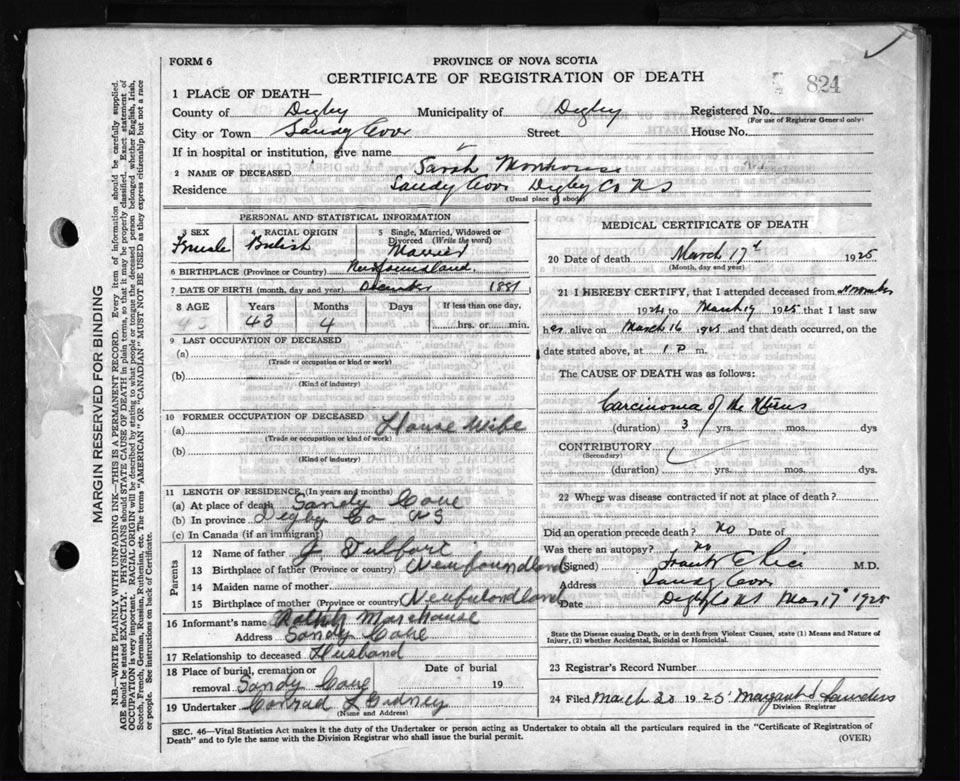 FORM 6
PROVINCE OF NOVA SCOTIA
CERTIFICATE OF REGISTRATION OF DEATH
824
1 PLACE OF DEATH—
County of Digby Municipality of Digby Registered No.
(For use of Registrar General only)
City or Town Sandy Cove Street House No.
If in hospital or institution, give name
2 NAME OF DECEASED Sarah
Residence Sandy Cove Digby Co NS
(Usual place of abode)
PERSONAL AND STATISTICAL INFORMATION
3 SEX Female
4 RACIAL ORIGIN British
5 Single, Married, Widowed or Divorced (Write the word) Married
6 BIRTHPLACE (Province or Country) Newfoundland.
7 DATE OF BIRTH (month, day, year) December 1881
8 AGE Years Months Days If less than one day,
43 4 hrs. or min.
9 LAST OCCUPATION OF DECEASED
(a)
(Trade or occupation or kind or work)
(b)
(Kind of industry)
10 FORMER OCCUPATION OF DECEASED
(a) House Wife
(Trade or occupation or kind of work)
(b)
(Kind of industry)
11 LENGTH OF RESIDENCE (In years and months)
(a) At place of death Sandy Cove
(b) In province Digby Co NS
(c) In Canada (if an immigrant)
Parents
12 Name of father J
13 Birthplace of father (Province or country) Newfoundland
14 Maiden name of mother
15 Birthplace of mother (Province or country) Newfulondland
16 Informant's name Ralph Morehouse
Address Sandy Cove
17 Relationship to deceased Husband
18 Place of burial, cremation or removal Sandy Cove Date of burial 19
19 Undertaker Conrad L Gidney
(Name and Address)
MEDICAL CERTIFICATE OF DEATH
20 Date of death March 17 1925
(Month, day and year)
21 I HEREBY CERTIFY, that I attended deceased from November
1924 to March 17 1925 that I last saw
her alive on March 16 1925 and that death occurred, on
date stated above, at 1 P m.
The CAUSE OF DEATH was as follows:
Carcinoma of the Uterus
(duration) 3 yrs. mos. dys
CONTRIBUTORY
(Secondary)
(duration) yrs. mos. dys.
22 Where was disease contracted if not at place of death?
Did an operation precede death? no Date of
Was there an autopsy? no
(Signed) Frank E Rice M.D.
Address Sandy Cove
Date Digby Co NS Mar 17 1925
State the Disease causing Death, or in death from Violent Causes, state (1) Means and Nature of
Injury, (2) whether Accidental, Suicidal or Homicidal.
23 Registrar's Record Number
24 Filed March 20 1925 Margaret Saunders
Division Registrar
SEC. 46—Vital Statistics Act makes it the duty of the Undertaker or person acting as Undertaker to obtain all the particulars required in the "Certificate of Registration of
Death" and to fyle the same with the Division Registrar who shall issue the burial permit.
(OVER)
MARGIN RESERVED FOR BINDING
N.B.—WRITE PLAINLY WITH UNFADING INK—THIS IS A PERMANENT RECORD. Every item of information should be carefully supplied.
AGE should be stated EXACTLY. PHYSICIANS should STATE CAUSE OF DEATH in plain terms, so that it may be properly classified. Exact statement of
OCCUPATION is very important. RACIAL ORIGIN will be described by stating to what people or tongue the deceased person belonged whether English, Irish,
Scotch, French, German, Russian, Ruthenian, etc. The terms "AMERICAN" OR "CANADIAN" MUST NOT BE USED as they express citizenship but not a race
or people. See instructions on back of Certificate.